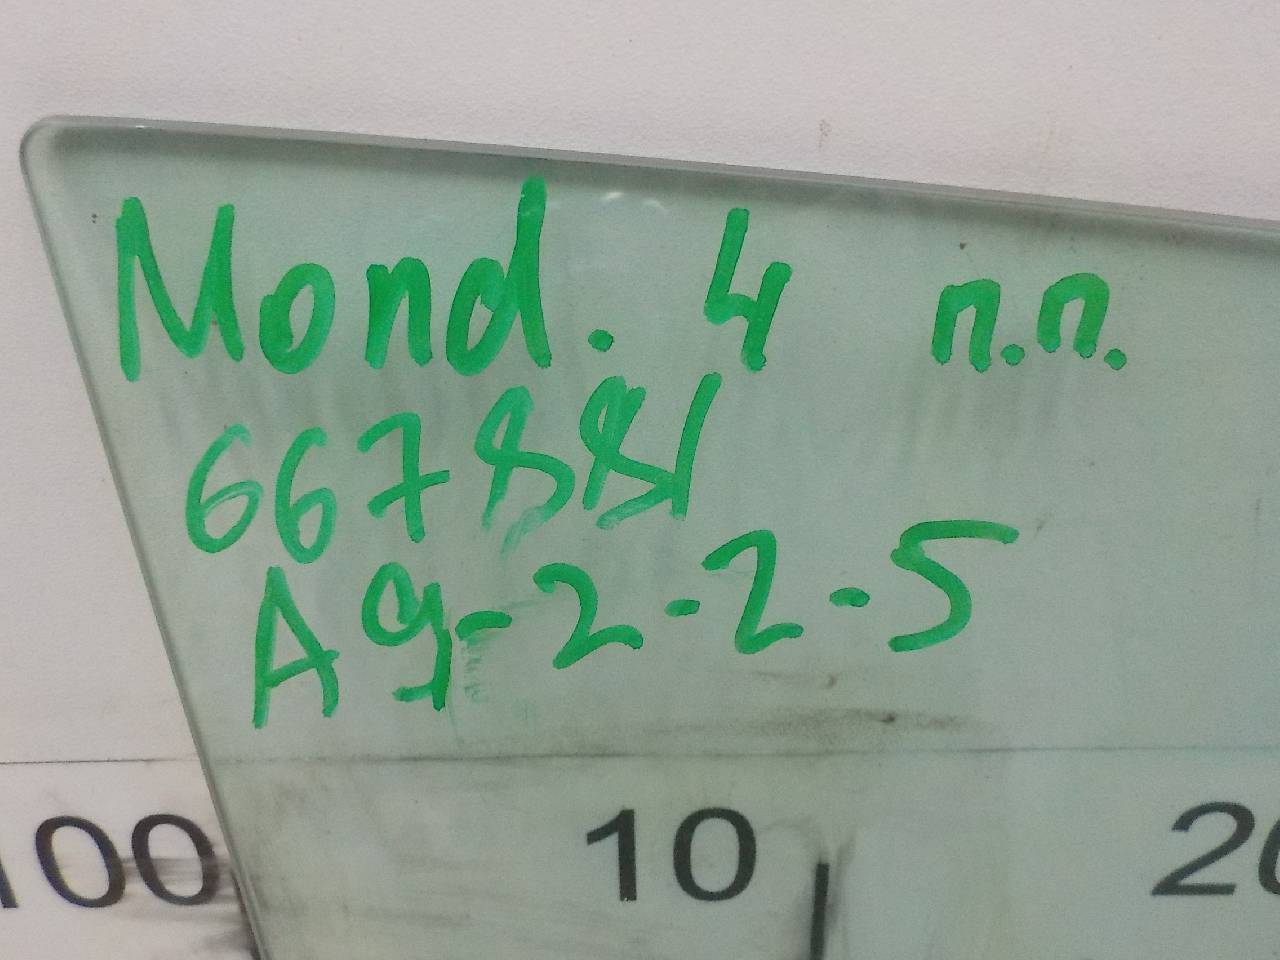 Mond. 4 п.п.
667881
A9-2-2-5
100 10 20